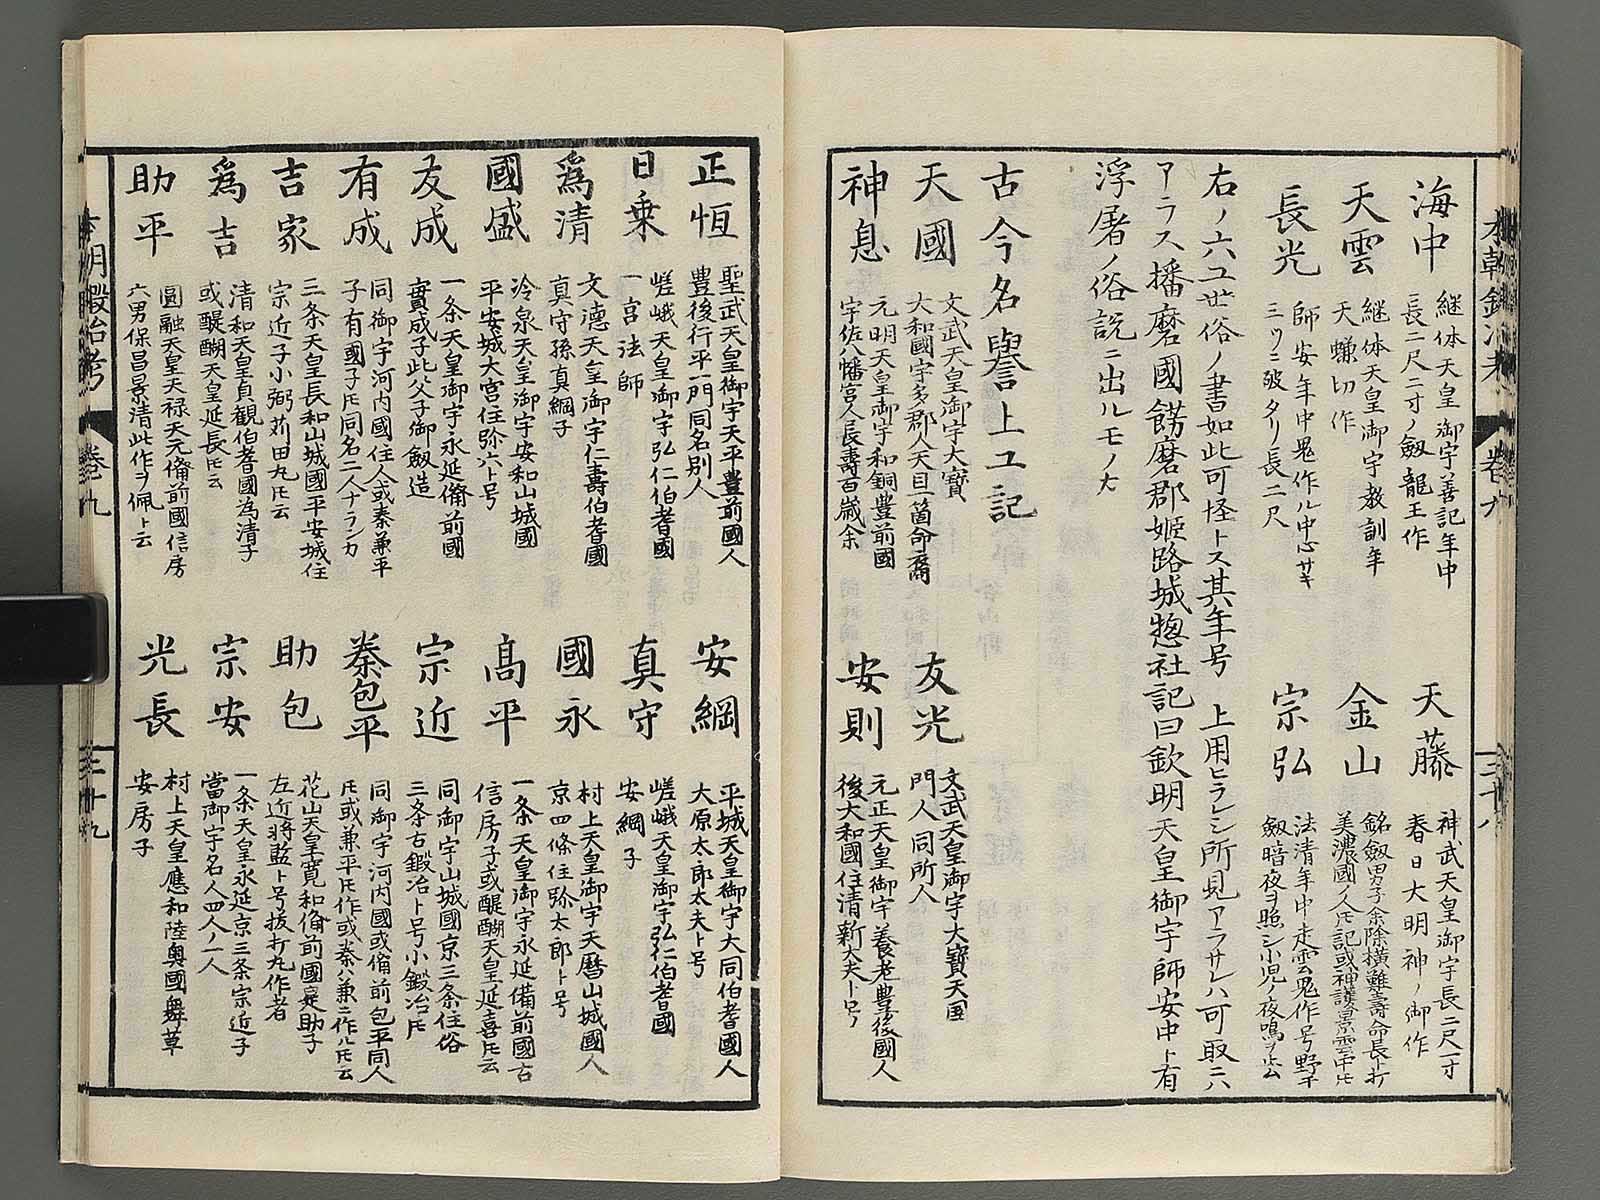 海中
継体天皇御宇善記年中
長二尺二寸ノ劔龍王作
天藤
神武天皇御宇長二尺一寸
春日大明神ノ御作
天雲
継体天皇御宇教訓年
天蠊切作
金山
銘劔男子余除横難壽命長ト打
美濃國ノ人氏記或神護景雲中氏
長光
師安年中鬼作ル中心サキ
三ツニ破タリ長二尺
宗弘
法清年中走雲鬼作号野干
劔暗夜ヲ照シ小児ノ夜鳴ヲ止ム
右ノ六工世俗ノ書如此可怪トス其年号 上用ヒラレシ所見アラサレハ可取ニハ
アラス播磨國餝磨郡姫路城惣社記曰欽明天皇御宇師安中ト有
浮屠ノ俗説ニ出ルモノ欤
古今名譽上工記
天國
文武天皇御宇大寶
大和國宇多郡人天目一箇命裔
友光
文武天皇御宇大寶天国
門人同所人
神息
元明天皇御宇和銅豊前國
宇佐八幡宮人長壽百歳余
安則
元正天皇御宇養老豊後國人
後大和國住清新大夫ト号
本朝鍛冶考
巻九
三十八
正恒
聖武天皇御宇天平豊前國人
豊後行平一門同名別人
安綱
平城天皇御宇大同伯耆國人
大原太郎太夫ト号
日乗
嵯峨天皇御宇弘仁伯耆國
一宮法師
真守
嵯峨天皇御宇弘仁伯耆國
安綱子
為清
文徳天皇御宇仁壽伯耆國
真守孫真綱子
國永
村上天皇御宇天暦山城國人
京四條住弥太郎ト号
國盛
冷泉天皇御宇安和山城國
平安城大宮住弥六ト号
高平
一条天皇御宇永延備前國古
信房子或醍醐天皇延喜氏云
友成
一条天皇御宇永延備前國
實成子此父子御劔造
宗近
同御宇山城國京三条住俗
三条古鍛冶ト号小鍛冶氏
有成
同御宇河内國住人或秦兼平
子有國子氏同名二人ナランカ
秦包平
同御宇河内國或備前包平同人
氏或兼平氏作或秦ハ兼ニ作ル氏云
吉家
三条天皇長和山城國平安城住
宗近子小弼苅田丸氏云
助包
花山天皇寛和備前國㝎助子
左近将監ト号抜打丸作者
為吉
清和天皇貞観伯耆國為清子
或醍醐天皇延長氏云
宗安
一条天皇永延京三条宗近子
當御宇名人四人ノ一人
助平
圓融天皇天禄天元備前國信房
六男保昌景清此作ヲ佩ト云
光長
村上天皇應和陸奥國舞草
安房子
本朝鍛冶考
巻九
三十九